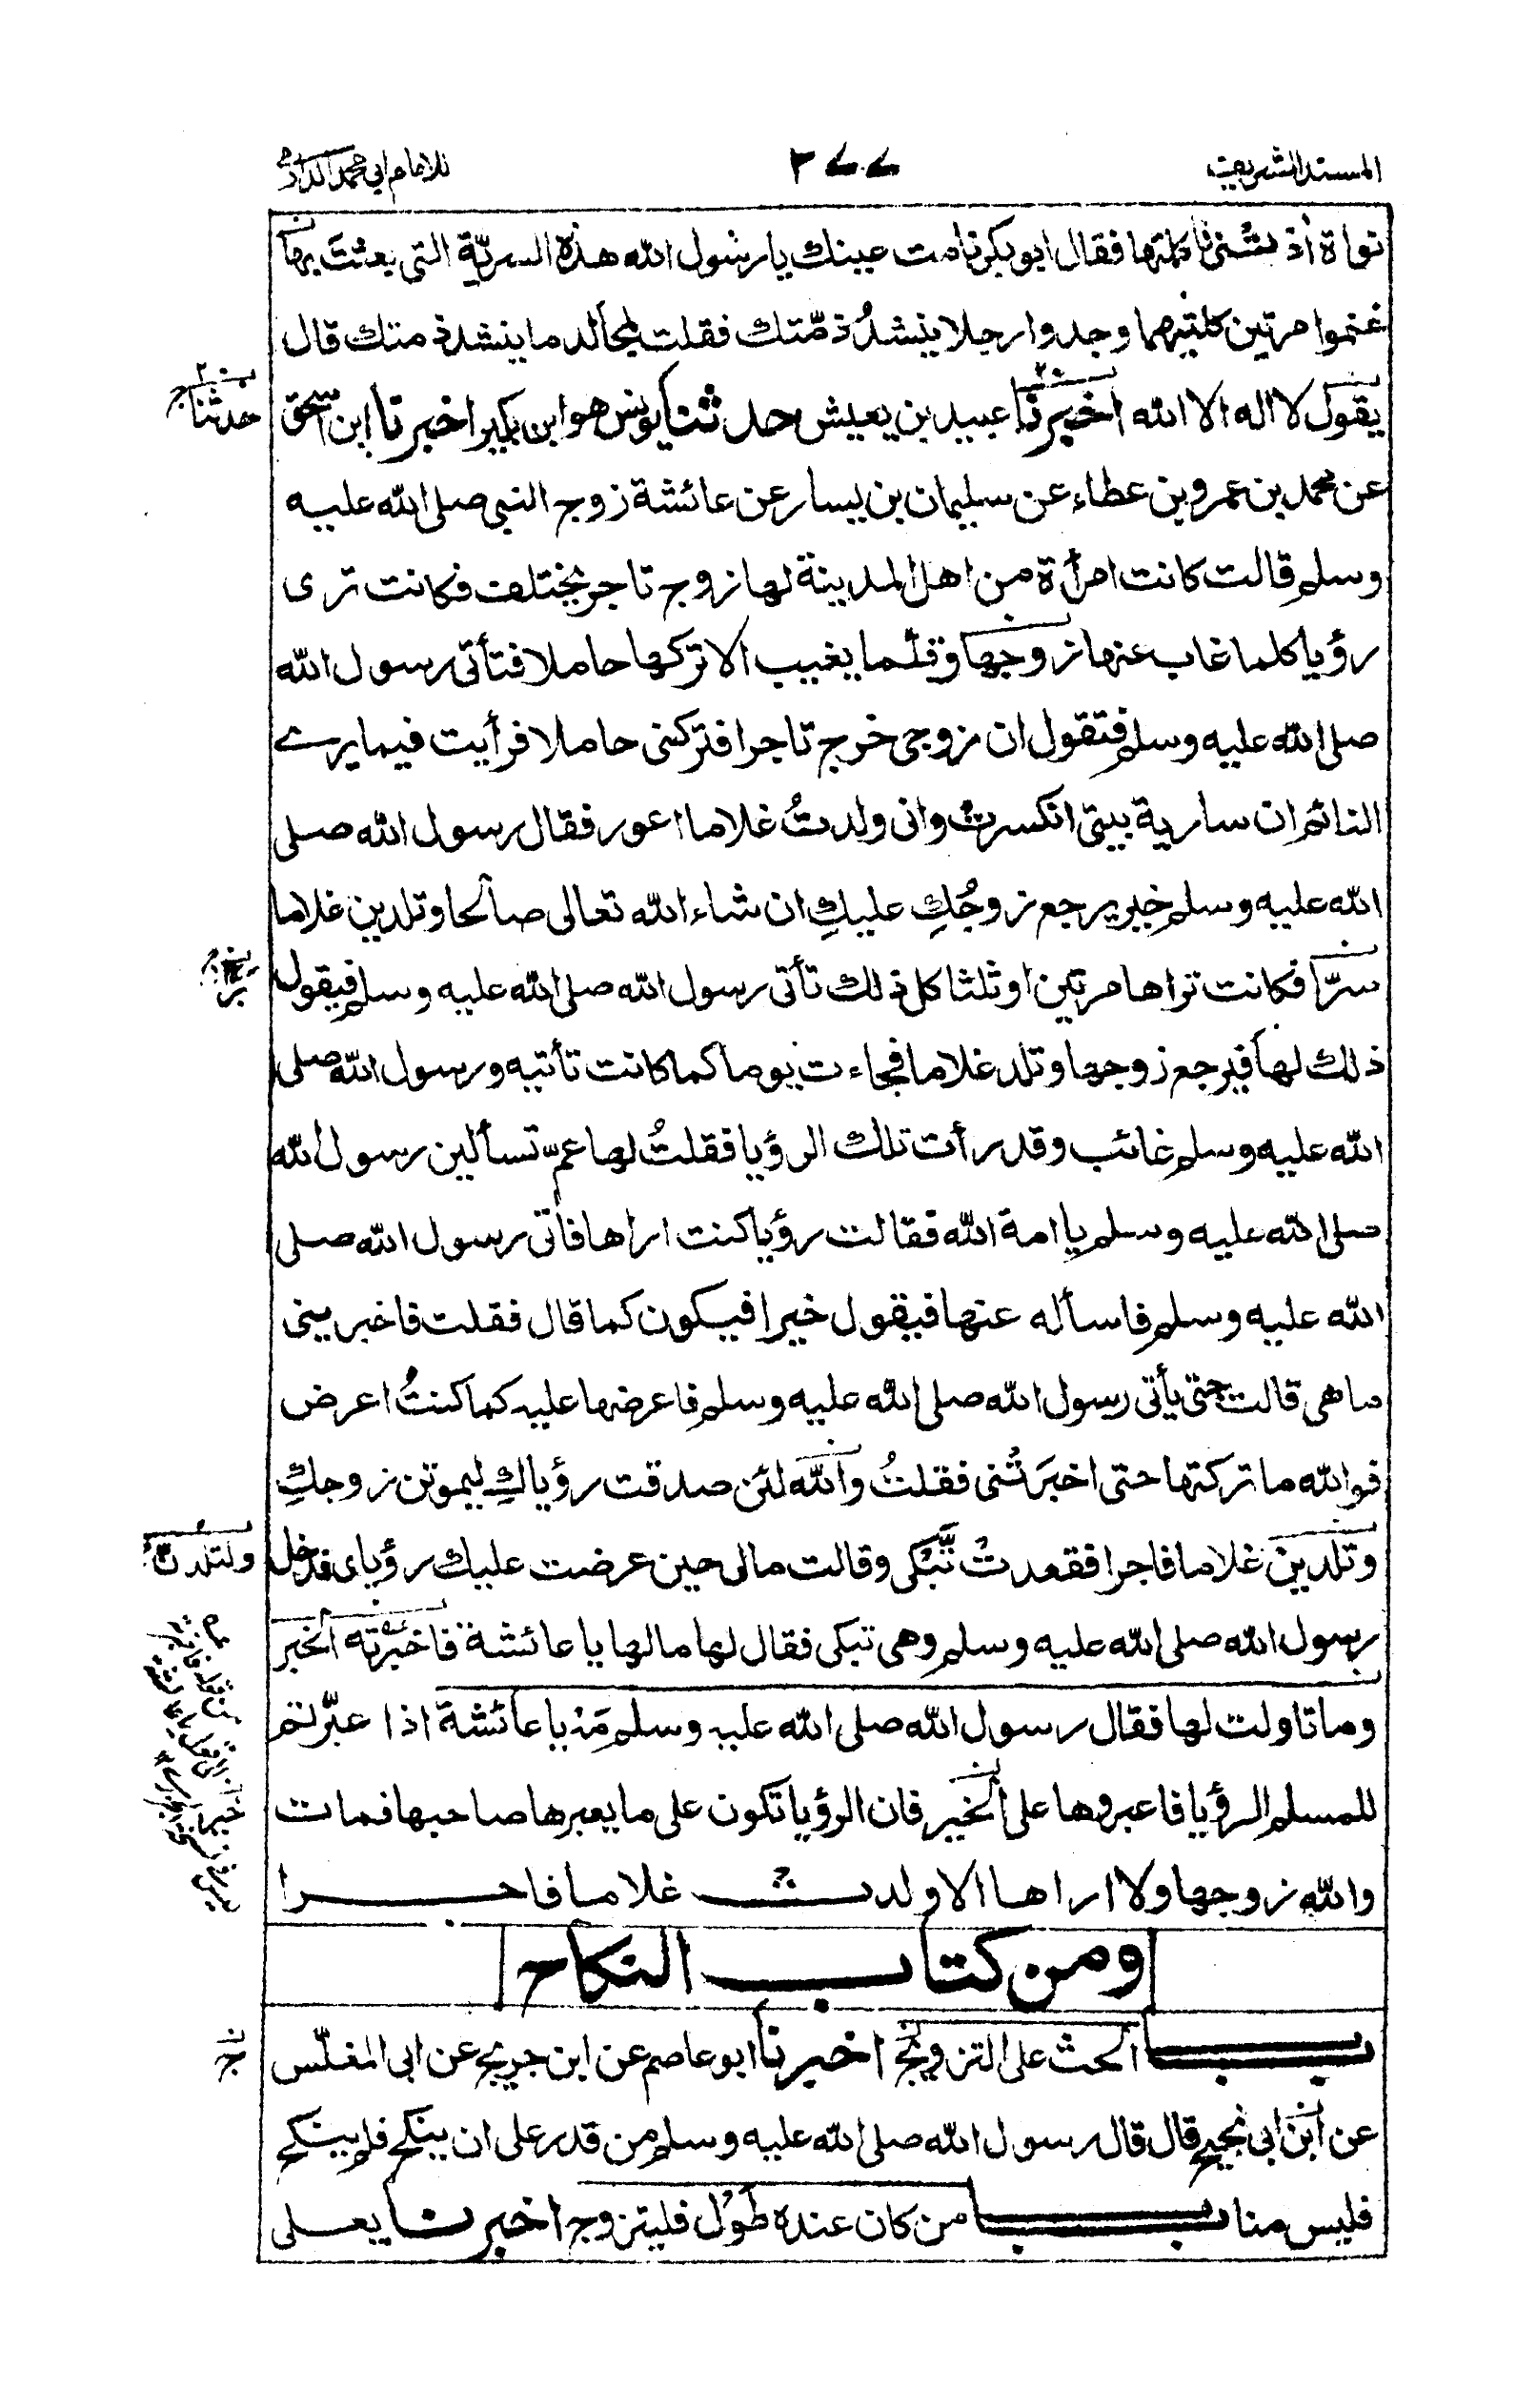 المسند الشريف ٢٧٧ للامام ابي محمد الدارمي
نواة اذتنى فلكتها فقال ابو بكر نامت عينك يا رسول الله هذه السرية التى بعثت بها
غنموا مرتين كلتيهما وجدوا رجلا ينشدُ ذمّتك فقلت لمجالد ما ينشد ذمتك قال
يقول لا اله الا الله اخبرنا عبيد بن يعيش حدثنا يونس هو ابن بكير اخبرنا ابن اسحق
حدثنا
عن محمد بن عمرو بن عطاء عن سليمان بن يسار عن عائشة زوج النبي صلى الله عليه
وسلم قالت كانت امرأة من اهل المدينة لها زوج تاجر يختلف فكانت ترى
رؤيا كلما غاب عنها زوجها وقلّما يغيب الا تركها حاملا فتأتى رسول الله
صلى الله عليه وسلم فتقول ان زوجى خرج تاجرا فتركنى حاملا فرأيت فيما يرے
النائم ان سارية بيتى انكسرت وانى ولدتُ غلاما اعور فقال رسول الله صلى
الله عليه وسلم خير يرجع زوجُكِ عليكِ ان شاء الله تعالى صالحا وتلدين غلاما
سرّا فكانت تراها مرتين او ثلثا كل ذلك تأتى رسول الله صلى الله عليه وسلم فيقول
ذلك لها فيرجع زوجها وتلد غلاما فجاءت يوما كما كانت تأتيه ورسول الله صلى
الله عليه وسلم غائب وقد رأت تلك الرؤيا فقلتُ لها عمّ تسألين رسول الله
صلى الله عليه وسلم يا امة الله فقالت رؤيا كنت اراها فاتى رسول الله صلى
الله عليه وسلم فاسأله عنها فيقول خيرا فيكون كما قال فقلت فاخبرينى
ما هى قالت حتى يأتى رسول الله صلى الله عليه وسلم فاعرضها عليه كما كنتُ اعرض
فوالله ما تركتها حتى اخبرَتْنى فقلتُ والله لئن صدقت رؤياكِ ليموتن زوجكِ
وتلدين غلاما فاجرا فقعدتْ تَبْكى وقالت مالى حين عرضت عليك رؤياى فدخل
ولتلدنّ
رسول الله صلى الله عليه وسلم وهى تبكى فقال لها مالها يا عائشة فاخبرته الخبر
وما تاولت لها فقال رسول الله صلى الله عليه وسلم مَهْ يا عائشة اذا عبّرتم
للمسلم الرؤيا فاعبروها على الخير فان الرؤيا تكون على ما يعبرها صاحبها فمات
والله زوجها ولا اراها الا ولدت غلاما فاجرا
ومن كتاب النكاح
باب الحث على التزويج اخبرنا ابو عاصم عن ابن جريج عن ابى المغلّس
عن ابن ابى نجيح قال قال رسول الله صلى الله عليه وسلم من قدر على ان ينكح فلم ينكح
فليس منا باب من كان عنده طَوْل فليتزوج اخبرنا يعلى